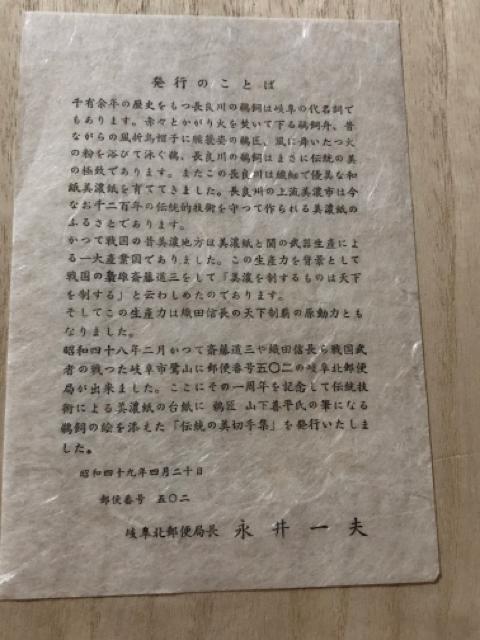 発行のことば
千有余年の歴史をもつ長良川の鵜飼は岐阜の代名詞で
もあります。赤々とかがり火を焚いて下る鵜飼舟、昔
ながらの風折烏帽子に腰蓑姿の鵜匠、風に舞いたつ火
の粉を浴びて泳ぐ鵜、長良川の鵜飼はまさに伝統の美
の極致であります。またこの長良川は繊細で優美な和
紙美濃紙を育ててきました。長良川の上流美濃市は今
なお千二百年の伝統的技術を守って作られる美濃紙の
ふるさとであります。
かつて戦国の昔美濃地方は美濃紙と関の武器生産によ
る一大産業国でありました。この生産力を背景として
戦国の梟雄斎藤道三をして「美濃を制するものは天下
を制する」と云わしめたのであります。
そしてこの生産力は織田信長の天下制覇の原動力とも
なりました。
昭和四十八年二月かつて斎藤道三や織田信長ら戦国武
者の戦った岐阜市鷺山に郵便番号五〇二の岐阜北郵便
局が出来ました。ここにその一周年を記念して伝統技
術による美濃紙の台紙に 鵜匠 山下善平氏の筆になる
鵜飼の絵を添えた「伝統の美切手集」を発行いたしま
した。
昭和四十九年四月二十日
郵便番号 五〇二
岐阜北郵便局長 永井一夫